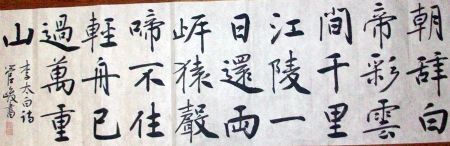 朝辞白
帝彩雲
間千里
江陵一
日還兩
岸猿聲
啼不住
輕舟已
過萬重
山
李太白詩